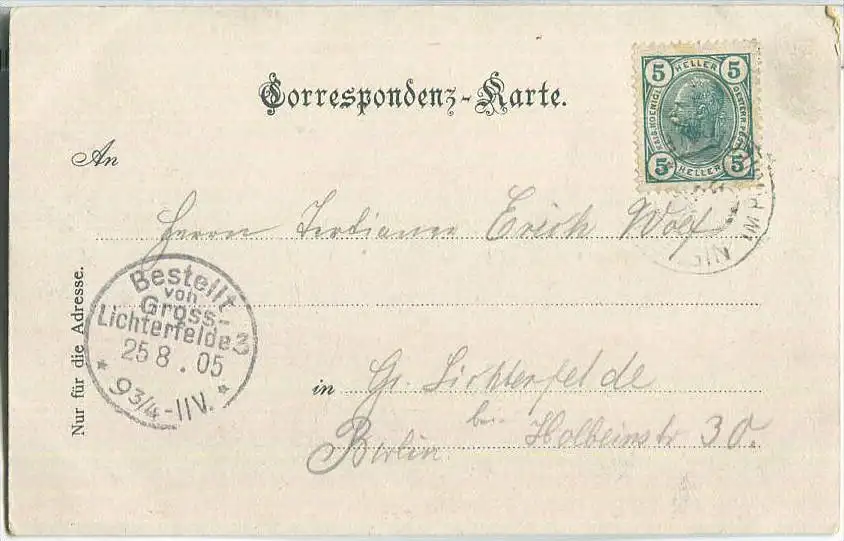 Correspondenz-Karte.
5 HELLER 5
5 HELLER 5
An
Herrn Tertianer Erich Wolf
GIN IM P
Nur für die Adresse.
Bestellt
von
Gross-
Lichterfelde 3
25 8. 05
* 9 3/4-11V. *
in Gr. Lichterfelde
bei Holbeinstr 30.
Berlin